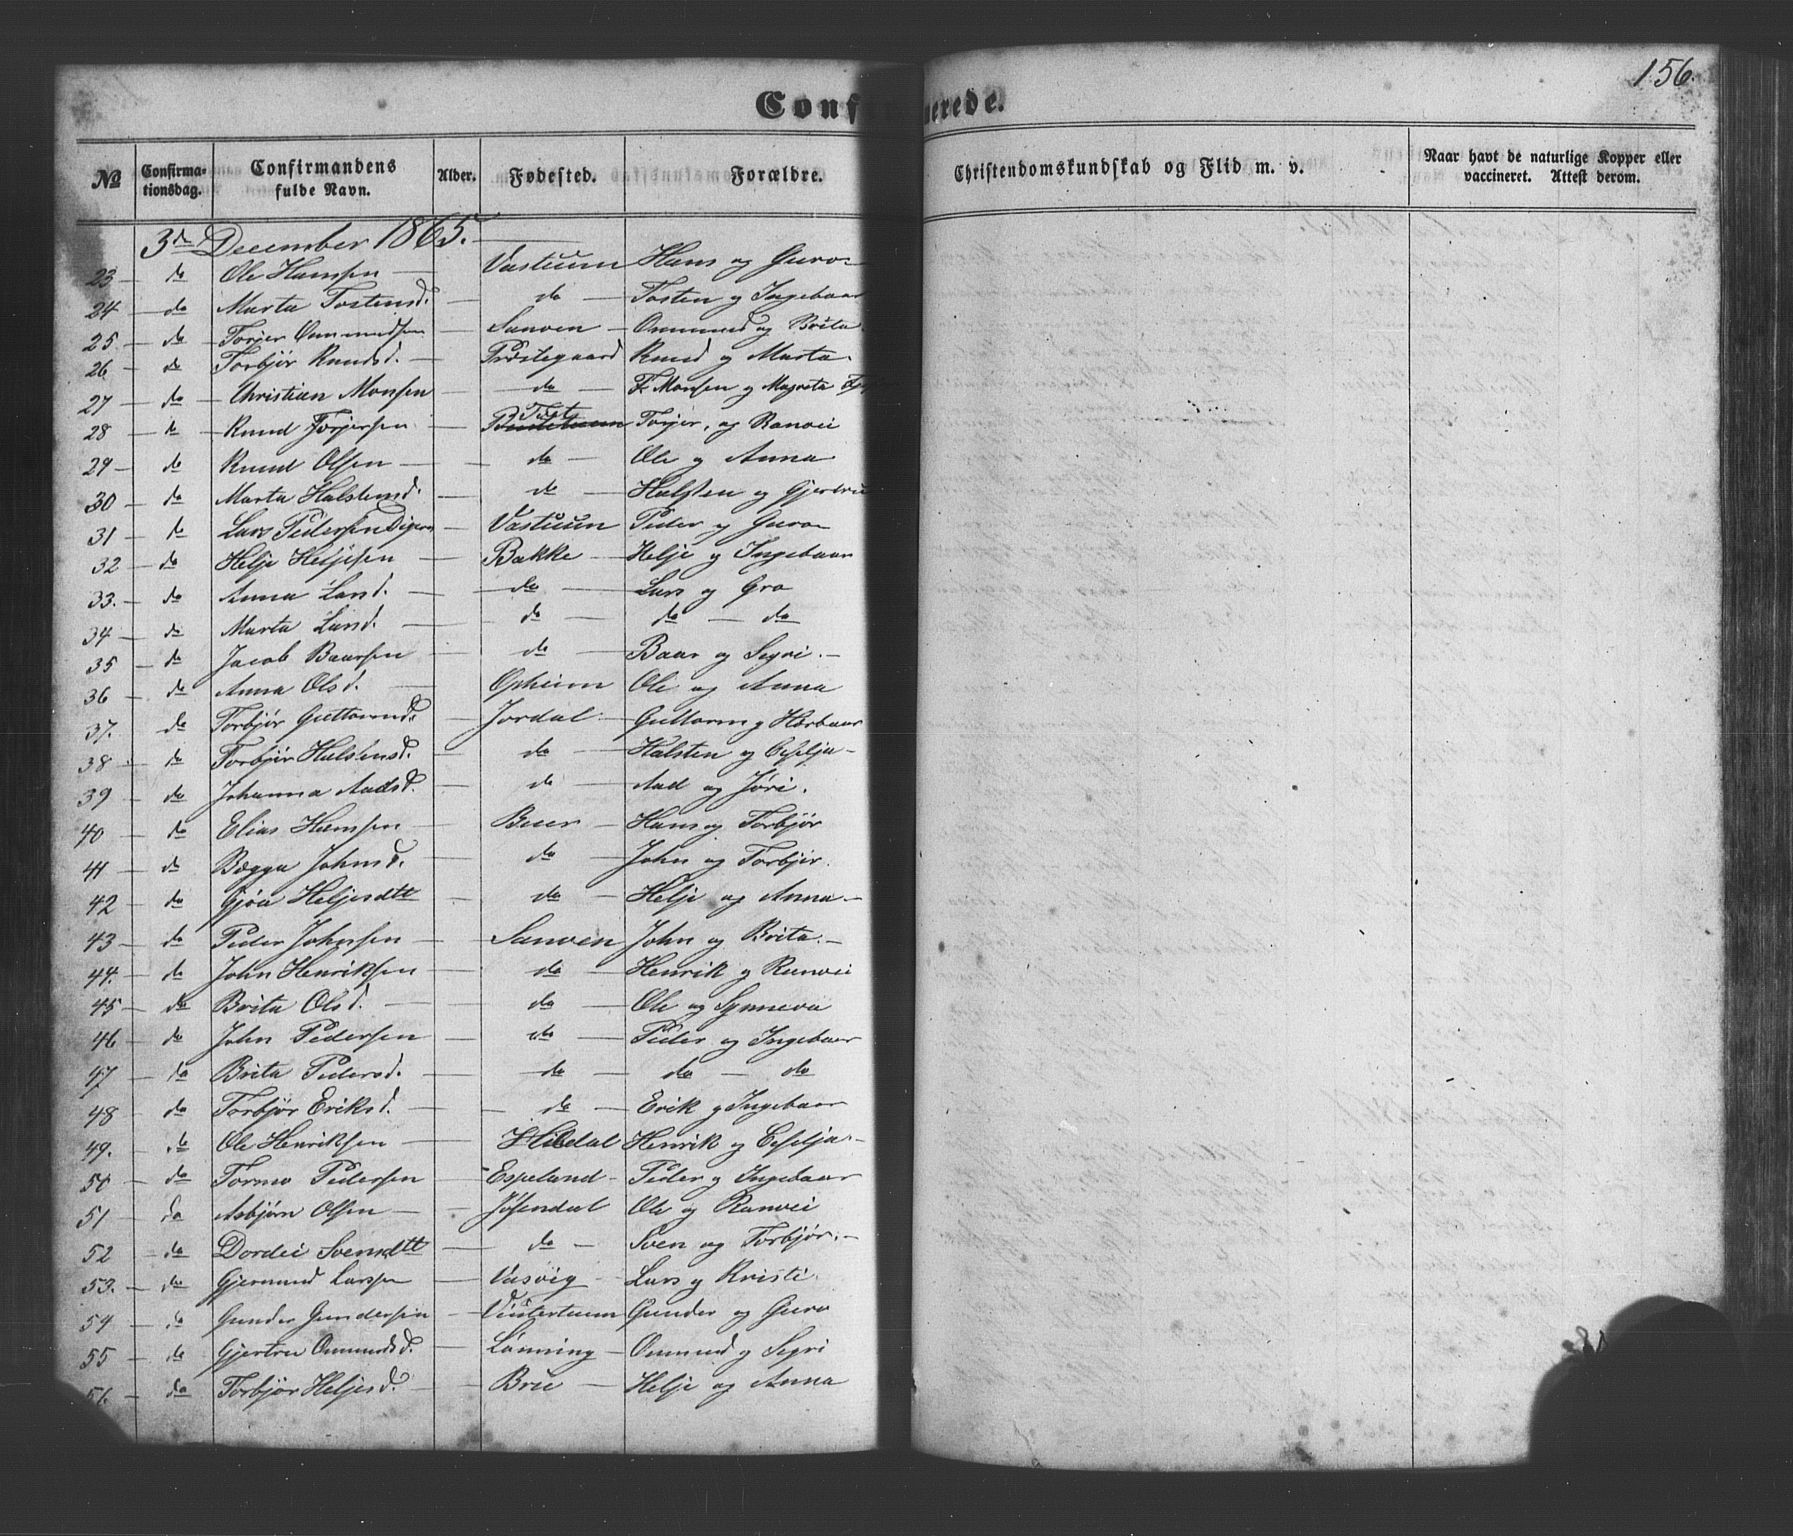 156.
Conf nerede.
No Confirma-tionsdag. Confirmandens fulde Navn. Alder. Fødested. Forældre. Christendomskundskab og Flid m. v. Naar havt de naturlige Kopper eller vaccineret. Attest derom.
3de December 1865.
23 — do Ole Hansen — Vastuun Hans og Guro
24 — do Marta Tostensd. — do — Tosten og Ingebaar
25 — do Torjer Ommundsen — Sanven — Ommund og Brita
26 — do Torbjør Knudsd. — Prestegaard Knud og Marta
27 — do Christian Monsen — do — F. Monsen og Magreta
28 — do Knud Torjersen — Tust Torjer, og Ranvei
29 — do Knud Olsen — do — Ole og Anna
30 — do Marta Halstensd. — do — Halsten og Gjertru
31 — do Lars Pedersen — Vastuun Peder og Guro
32 — do Helje Heljesen — Bakke — Helje og Ingebaar
33. — do Anna Larsd. — do — Lars og Gro
34 — do Marta Larsd. — do — do — do
35 — do Jacob Baarsen — do — Baar og Sigri. —
36 — do Anna Olsd. — Opheim Ole og Anna
37. do Torbjør Guttormsd. — Jordal — Guttorm og Herbaar
38 — do Torbjør Halstensd. — do — Halsten og Ceselja —
39 — do Johanna Aadsd. — do — Aad og Jøri.
40 — do Elias Hansen — Buer — Hans og Torbjør
41 — do Bægga Johnsd. — do — John og Torbjør.
42 — do Gjøa Heljesdtt — do — Helje og Anna —
43 — do Peder Johnsen — Sanven John og Brita. —
44. — do John Henriksen — do — Henrik og Ranvei
45 — do Brita Olsd. — do — Ole og Synneva
46 — do John Pedersen — do — Peder og Ingebaar
47 — do Brita Pedersd. — do — do — do
48 — do Torbjør Eriksd. — do — Erik og Ingebaar
49. — do Ole Henriksen — Hildal Henrik og Ceselja. —
50 — do Tormo Pedersen — Espeland — Peder og Ingebaar
51 — do Asbjørn Olsen — Jøsendal Ole og Ranvei
52 — do Dordei Svensdtt — do — Sven og Torbjør. —
53. — do Gjermund Larsen — Vasvig — Lars og Kristi.
54 — do Gunder Gundersen — Vintertuun Gunder og Guro
55 — do Gjertru Ommundsd. — Lønning — Ommund og Sigri
56. — do Torbjør Heljesd. — Bru — Helje og Anna